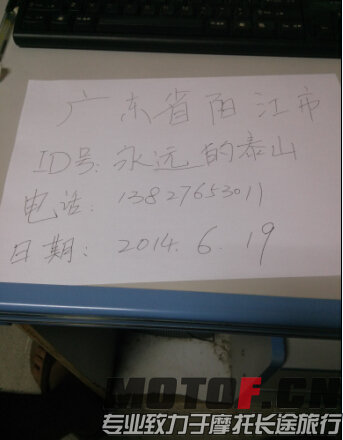 广东省阳江市
ID号：永远的泰山
电话：13827653011
日期：2014.6.19
MOTOF.CN
专业致力于摩托长途旅行